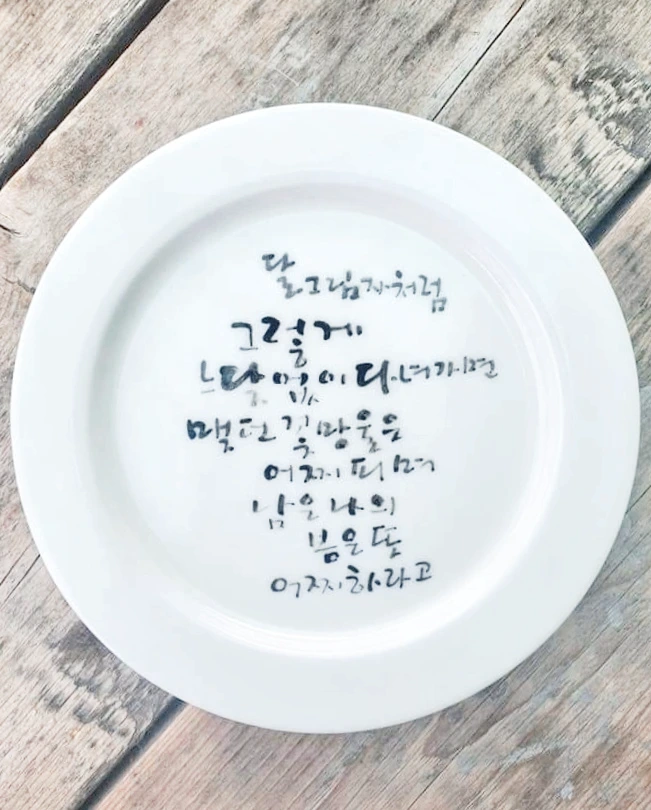 달그림자처럼
그렇게
느닷없이 다녀가면
맺던 꽃망울은
어찌 피며
남은 나의
봄은 또
어찌하라고